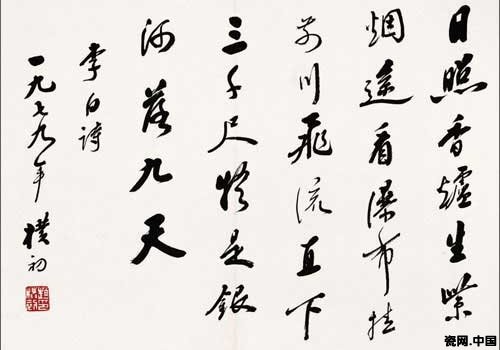 日照香爐生紫
烟遥看瀑布挂
前川飛流直下
三千尺疑是銀
河落九天
李白詩
一九七九年 樸初
瓷网.中国